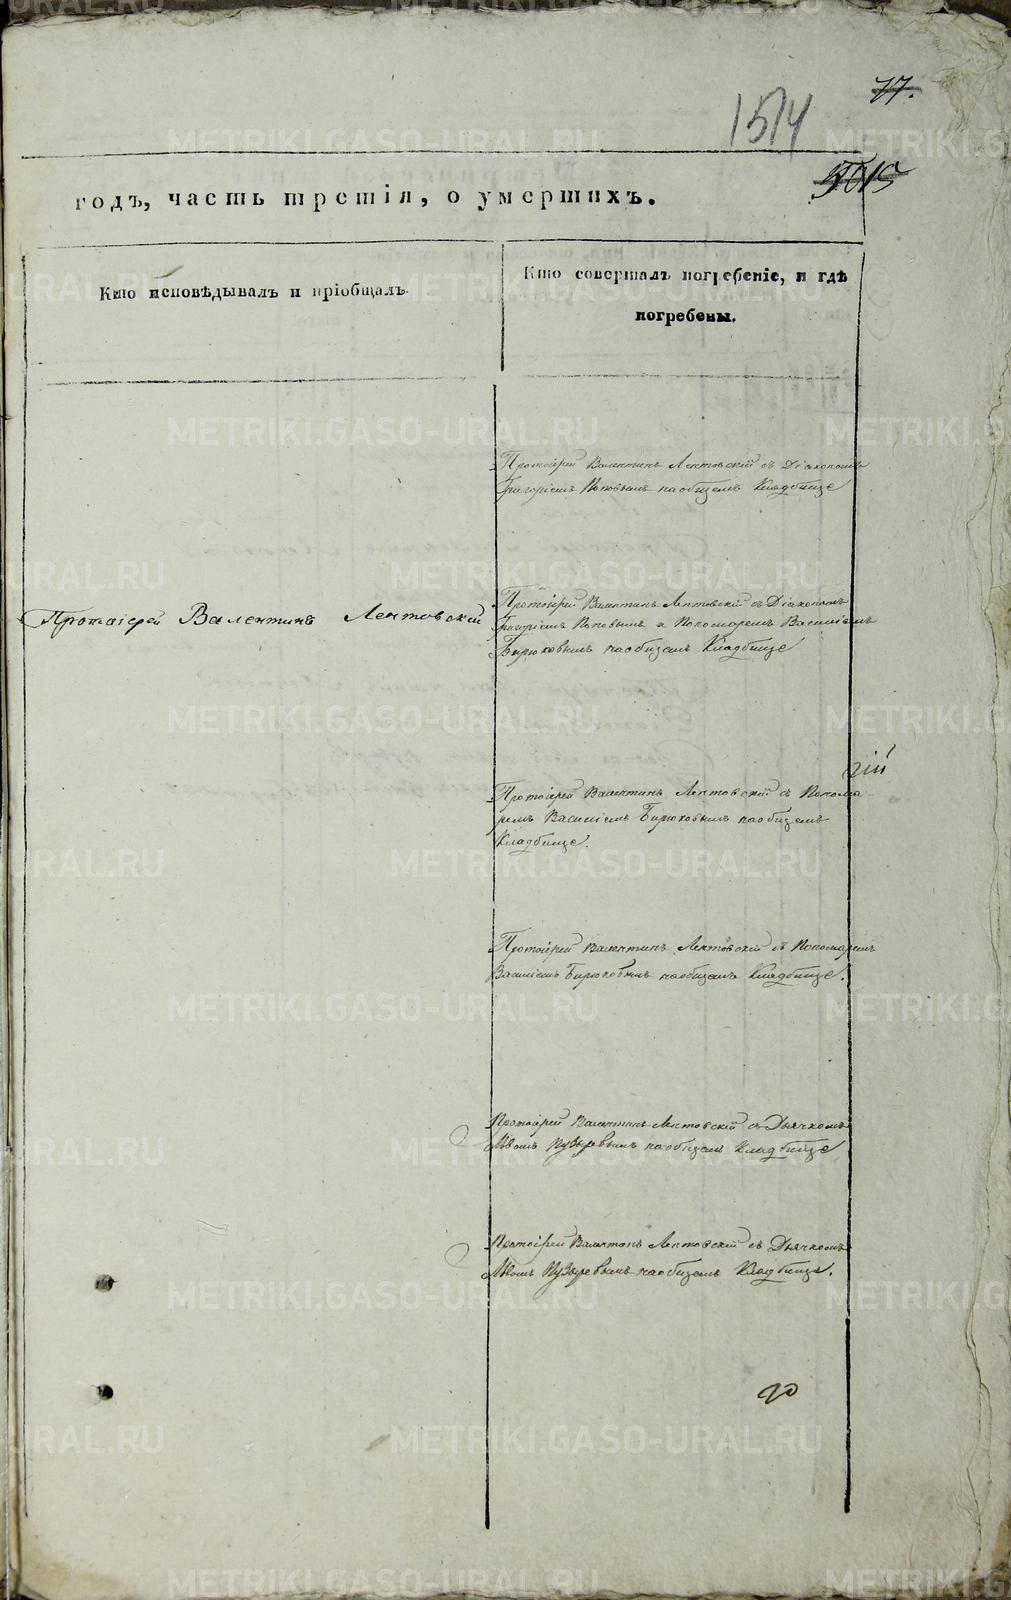 77.
1514
годъ, часть третія, о умершихъ.
Кто исповѣдывалъ и пріобщалъ.
Кто совершалъ погребеніе, и гдѣ
погребены.
Протоіерей Валентинъ Лентовскій съ Діакономъ
Григоріемъ Поповымъ на общемъ Кладбище
Протоіерей Валентинъ Лентовскій
Протоіерей Валентинъ Лентовскій съ Діакономъ
Григоріемъ Поповымъ и Пономаремъ Василіемъ
Бирюковымъ на общемъ Кладбище
Протоіерей Валентинъ Лентовскій съ Понома
ремъ Василіемъ Бирюковымъ на общемъ
Кладбище.
Протоіерей Валентинъ Лентовскій съ Пономаремъ
Василіемъ Бирюковымъ на общемъ Кладбище.
Протоіерей Валентинъ Лентовскій съ Дьячкомъ
Пузыревымъ на общемъ Кладбище
Протоіерей Валентинъ Лентовскій съ Дьячкомъ
Пузыревымъ на общемъ Кладбище.
METRIKI.GASO-URAL.RU